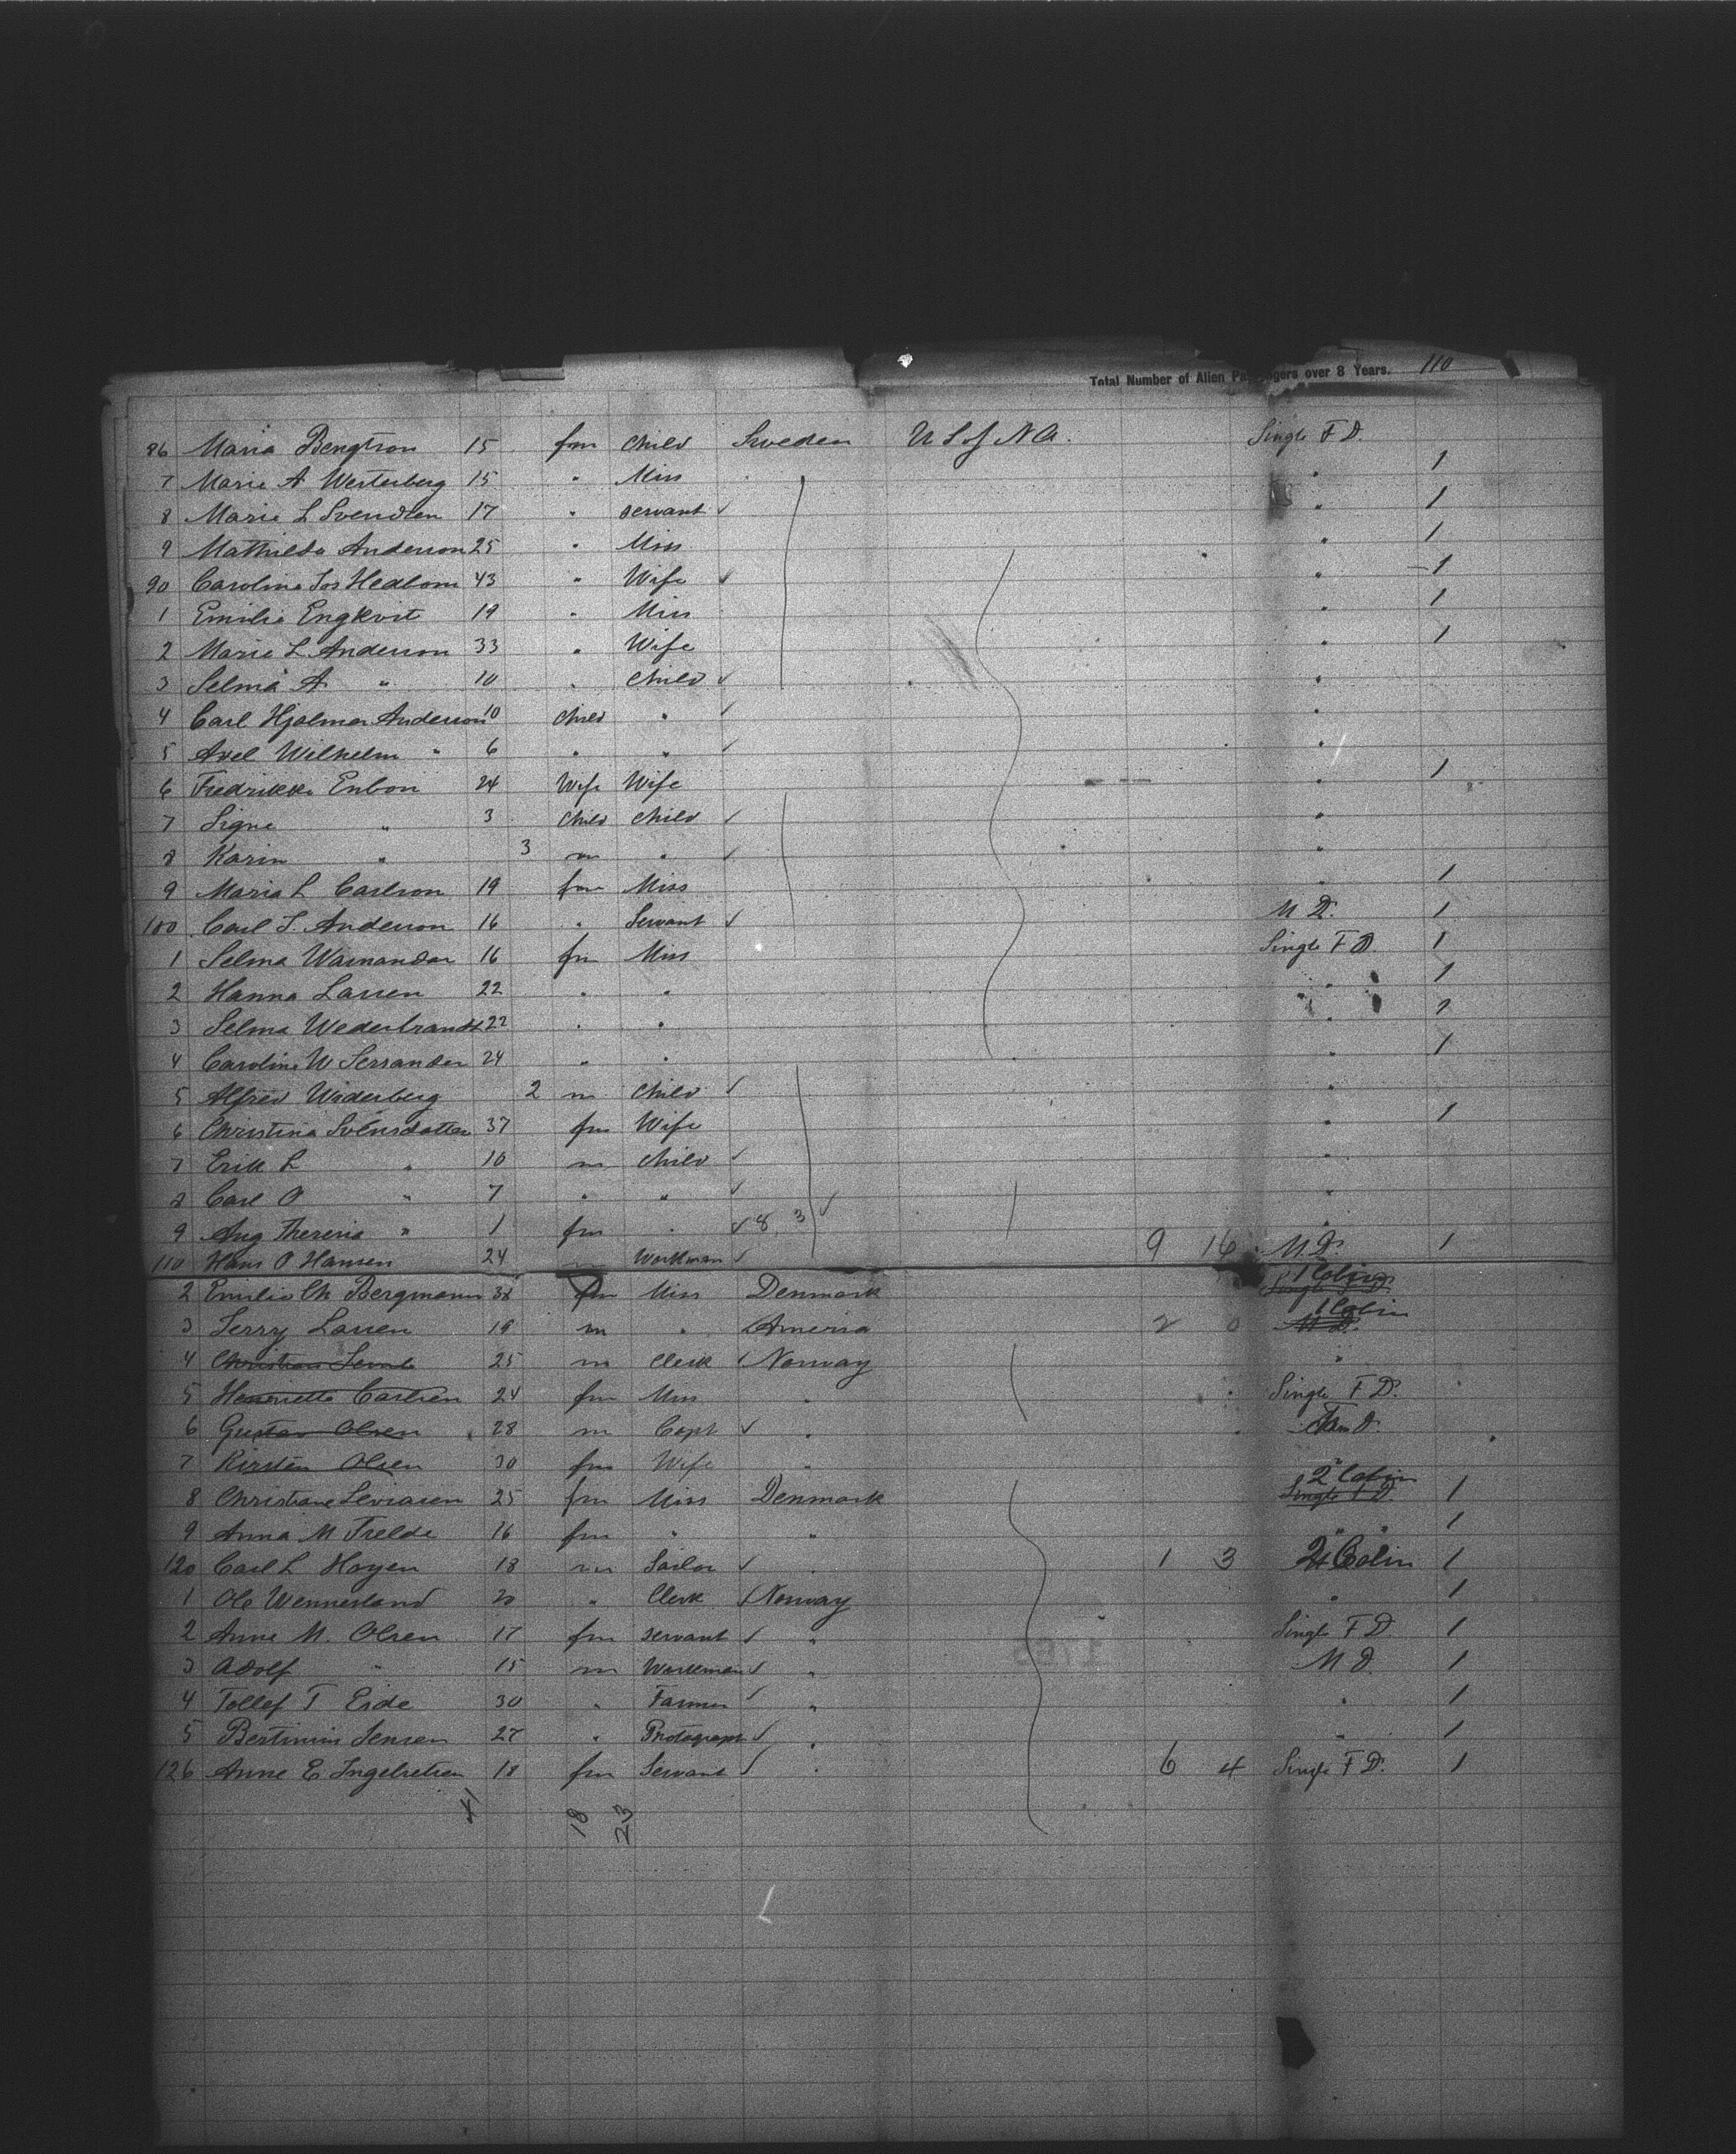 Total Number of Alien Passengers over 8 Years. 110
86 Maria Bengtson 15 fm child Sweden U S of N A. Single F D.
7 Marie A Westerberg 15 " Miss " 1
8 Marie L Svendsen 17 " servant ✓ " 1
9 Mathilda Anderson 25 " Miss " 1
90 Caroline Jos Hedbom 43 " Wife ✓ " 1
1 Emilie Engkvist 19 " Miss " 1
2 Marie L Anderson 33 " Wife " 1
3 Selma A " 10 " child ✓ "
4 Carl Hjalmar Anderson 10 child " ✓ "
5 Axel Wilhelm " 6 " " ✓ "
6 Fredrikke Enbon 24 Wife Wife " 1
7 Signe " 3 child child ✓ "
8 Karin " 3 m " ✓ "
9 Maria L Carlson 19 fm Miss " 1
100 Carl J. Anderson 16 " Servant ✓ M D. 1
1 Selma Warnander 16 fm Miss Single F D 1
2 Hanna Larsen 22 " " " 1
3 Selma Wederbrandt 22 " " " 1
4 Caroline W Serrander 24 " " " 1
5 Alfred Widerberg 2 m child ✓ "
6 Christina Svensdatter 37 fm Wife " 1
7 Erik L " 10 m child ✓ "
8 Carl O " 7 " " ✓ "
9 Aug Theresia " 1 fm " ✓ 8 3 ✓ "
110 Hans O Hansen 24 m Workman ✓ 9 16 M D. 1
2 Emilie Ch Bergmann 38 fm Miss Denmark Single F D. 1 Cabin
3 Jerry Larsen 19 m " America 2 0 M D. 1 Cabin
4 Christian 25 m Clerk ✓ Norway "
5 Henriette Carlsen 24 fm Miss " Single F D.
6 Gustav Olsen 28 m Capt ✓ "
7 Kirsten Olsen 30 fm Wife "
8 Christiane Leviasen 25 fm Miss Denmark Single F D. 2 Cabin 1
9 Anna M Trelde 16 fm " " " " 1
120 Carl L Hoyen 18 m Sailor ✓ " 1 3 2 Cabin 1
1 Ole Wennerland 20 " Clerk ✓ Norway " 1
2 Anne M. Olsen 17 fm servant ✓ " Single F D 1
3 Adolf " 15 m Workman ✓ " M D. 1
4 Tollef T Eide 30 " Farmer ✓ " " 1
5 Bertinius Jensen 27 " Photograph ✓ " " 1
126 Anne E Ingebretsen 18 fm Servant ✓ " 6 4 Single F D. 1
41 18 23